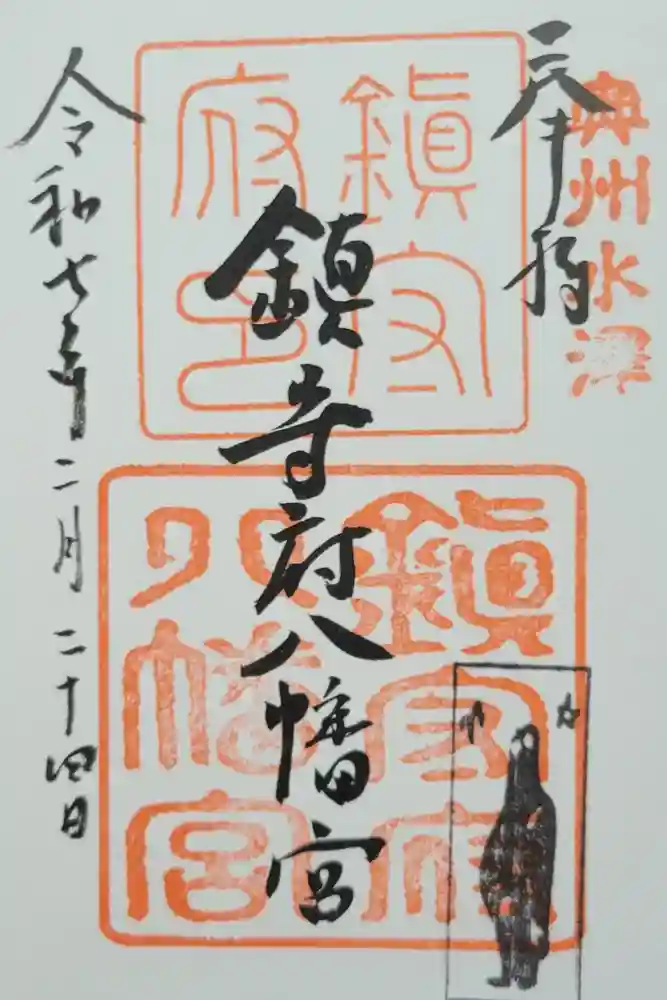 奥州水澤
奉拝
鎮守府八幡宮
令和七年二月二十四日
鎮守府印
鎮守府八幡宮